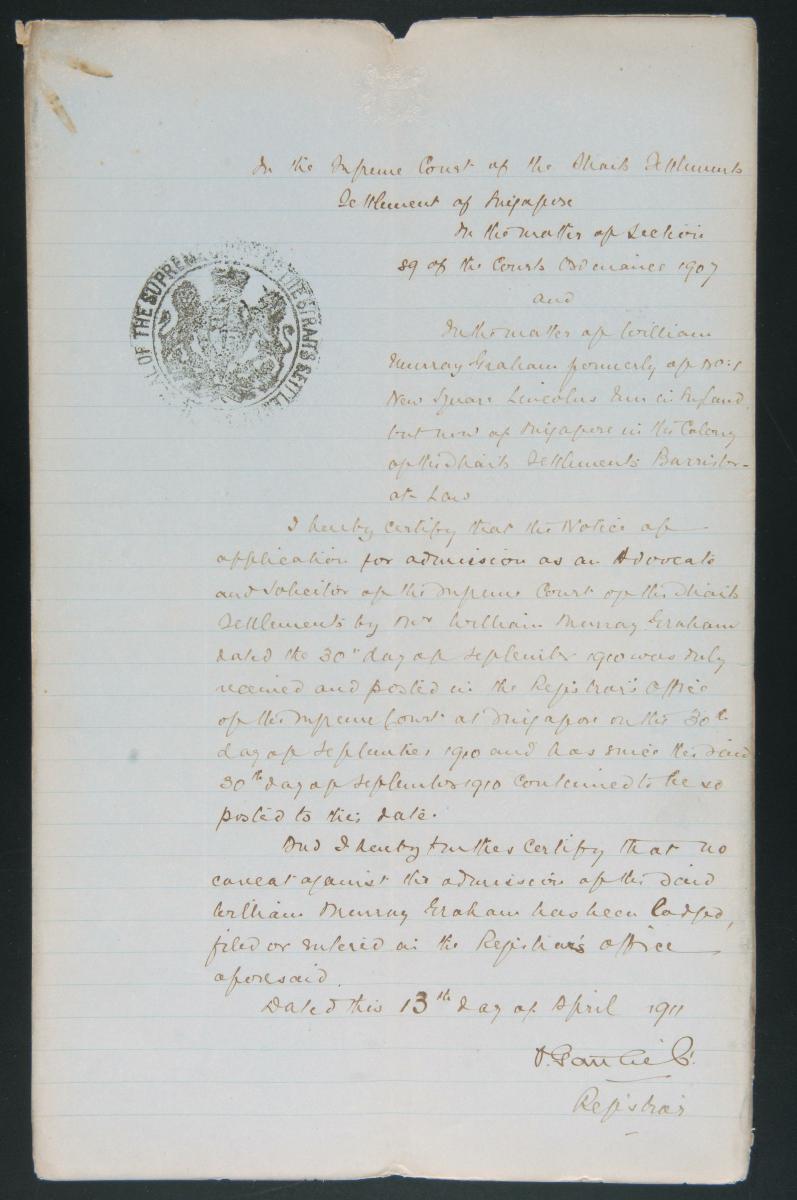 In the Supreme Court of the Straits Settlements
Settlement of Singapore
In the matter of Section
89 of the Courts Ordinance 1907
and
In the matter of William
Murray Graham formerly of No: 1
New Square Lincolns Inn in England
but now of Singapore in the Colony
of the Straits Settlements Barrister-
at-Law
SEAL OF THE SUPREME COURT OF THE STRAITS SETTLEMENTS
I hereby certify that the Notice of
application for admission as an Advocate
and Solicitor of the Supreme Court of the Straits
Settlements by Mr William Murray Graham
dated the 30th day of September 1910 was duly
received and posted in the Registrar's Office
of the Supreme Court at Singapore on the 30th
day of September 1910 and has since the said
30th day of September 1910 continued to be so
posted to this date.
And I hereby further certify that no
caveat against the admission of the said
William Murray Graham has been lodged,
filed or entered in the Registrar's office
aforesaid.
Dated this 13th day of April 1911
Registrar